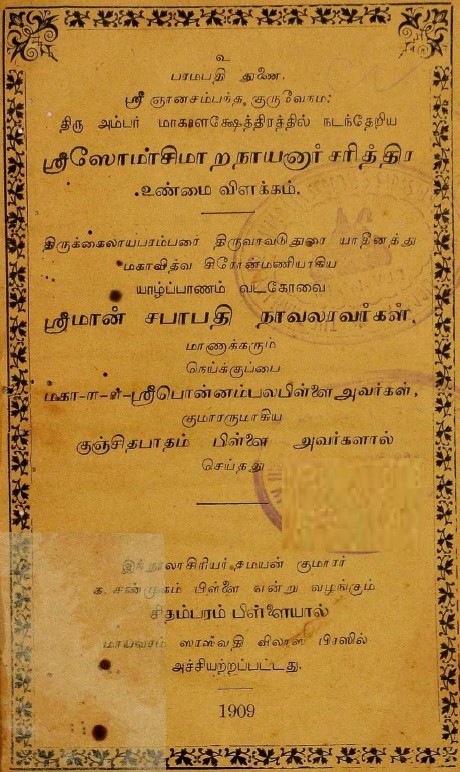 உ
பரமபதி துணை.
ஸ்ரீ ஞானசம்பந்த குருவேநம:
திரு அம்பர் மாகாளக்ஷேத்திரத்தில் நடந்தேறிய
ஸ்ரீஸோமாசிமாறநாயனார் சரித்திர
உண்மை விளக்கம்.
திருக்கைலாயபரம்பரை திருவாவடுதுறை யாதீனத்து
மகாவித்வ சிரோன்மணியாகிய
யாழ்ப்பாணம் வடகோவை
ஸ்ரீமான் சபாபதி நாவலரவர்கள்,
மாணாக்கரும்
நெய்க்குப்பை
மகா-ள-ள-ஸ்ரீபொன்னம்பலபிள்ளை அவர்கள்,
குமாரருமாகிய
குஞ்சிதபாதம் பிள்ளை அவர்களால்
செய்தது
இந்நூலாசிரியர் தமயன் குமாரர்
க. சண்முகம் பிள்ளை என்று வழங்கும்
சிதம்பரம் பிள்ளையால்
மாயவரம் ஸரஸ்வதி விலாஸ பிரஸில்
அச்சியற்றப்பட்டது.
1909